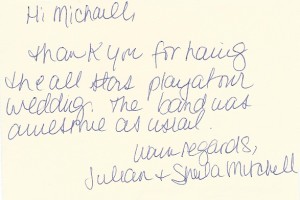 Hi Michael,
Thank you for having
the all stars play at our
wedding. The band was
awesome as usual.
Warm regards,
Julian + Sheila Mitchell